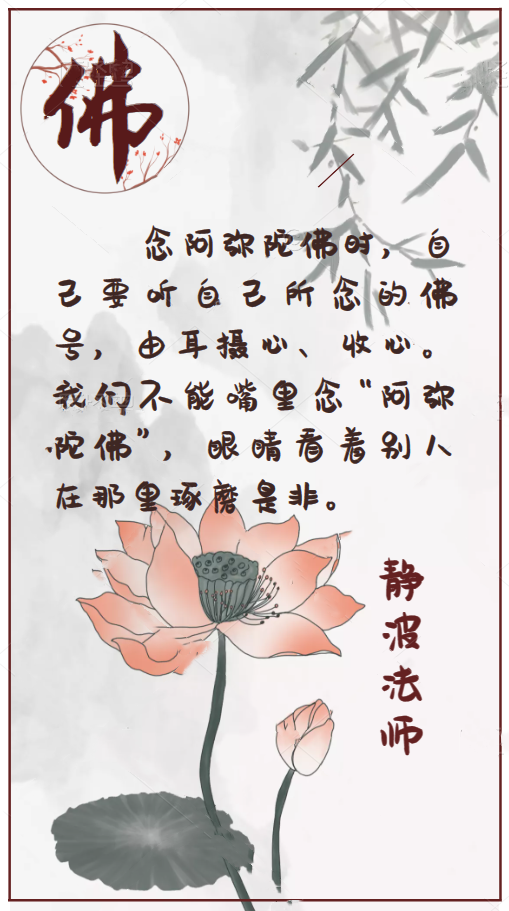 佛
念阿弥陀佛时，自
己要听自己所念的佛
号，由耳摄心、收心。
我们不能嘴里念“阿弥
陀佛”，眼睛看着别人
在那里琢磨是非。
静波法师